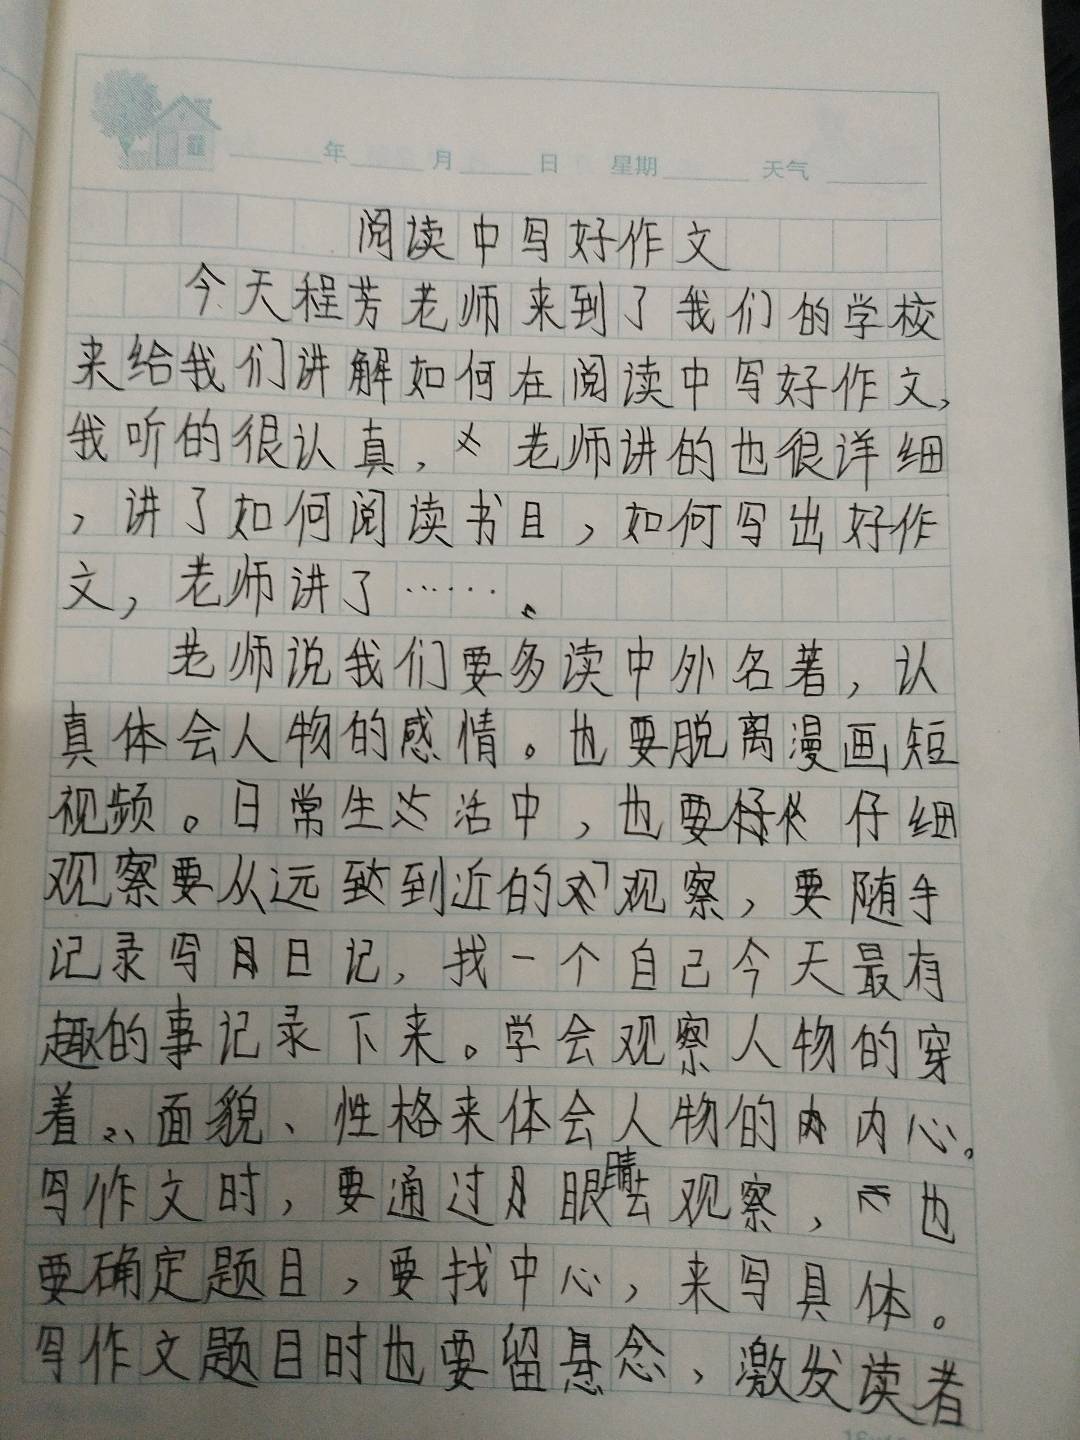 年 月 日 星期 天气
阅读中写好作文
今天程芳老师来到了我们的学校
来给我们讲解如何在阅读中写好作文,
我听的很认真,老师讲的也很详细
,讲了如何阅读书目,如何写出好作
文,老师讲了……。
老师说我们要多读中外名著,认
真体会人物的感情。也要脱离漫画短
视频。日常生活中,也要仔细
观察要从远到近的观察,要随手
记录写日记,找一个自己今天最有
趣的事记录下来。学会观察人物的穿
着、面貌、性格来体会人物的内心。
写作文时,要通过眼睛去观察,也
要确定题目,要找中心,来写具体。
写作文题目时也要留悬念、激发读者